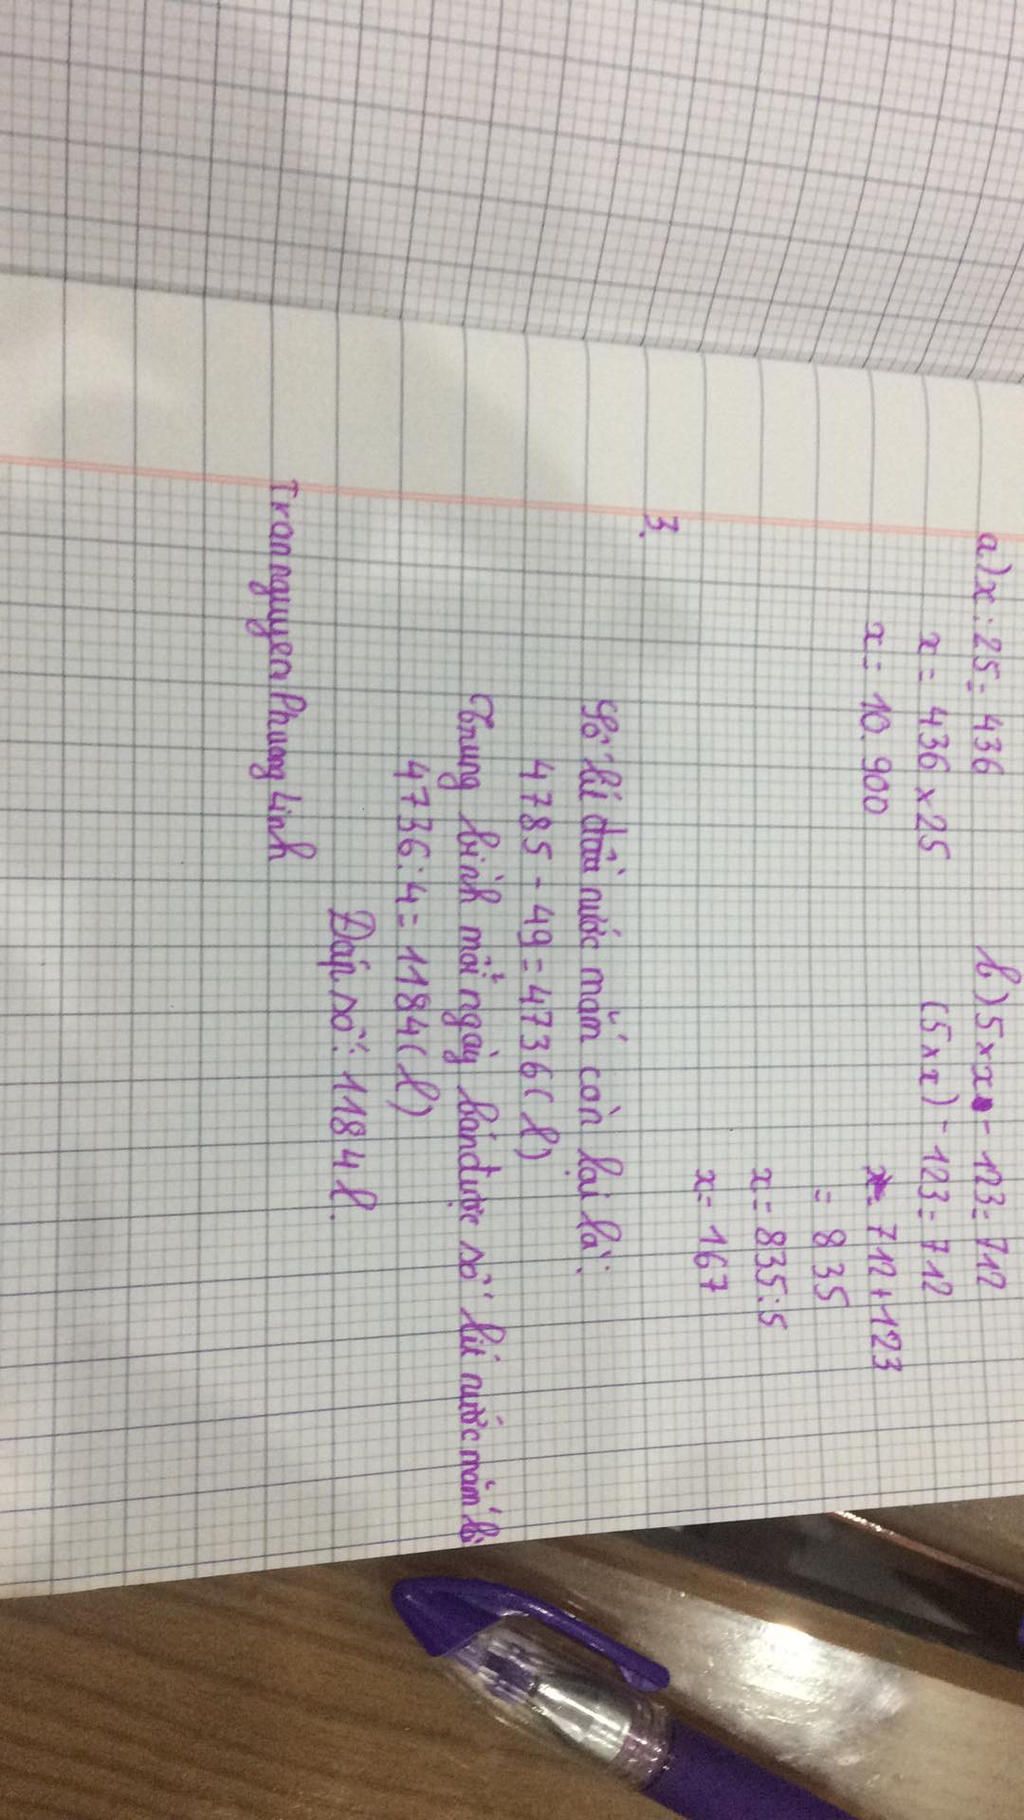 a) x : 25 = 436
x = 436 x 25
x = 10.900
b) 5 x x - 123 = 712
(5 x x) - 123 = 712
x = 712 + 123
= 835
x = 835 : 5
x = 167
3.
Số lít nước mắm còn lại là:
4785 - 49 = 4736 (l)
Trung bình mỗi ngày bán được số lít nước mắm là
4736 : 4 = 1184 (l)
Đáp số: 1184 l.
Tran nguyen Phuong Linh